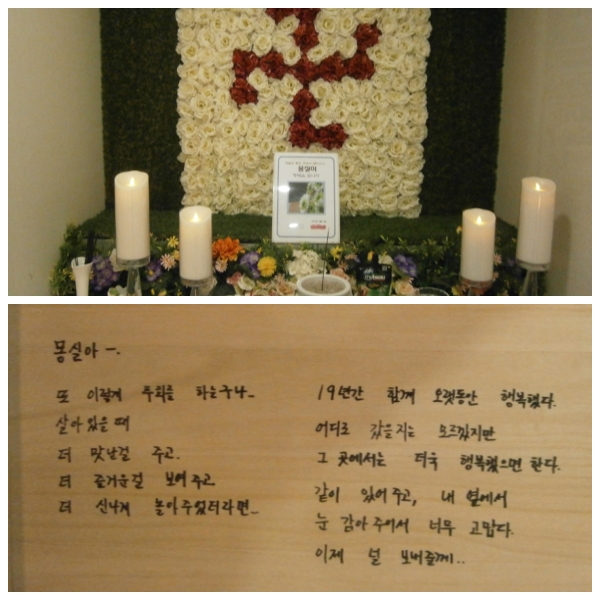 몽실이
몽실아 -.
또 이렇게 후회를 하는구나..
살아있을 때
더 맛난걸 주고.
더 즐거운걸 보여주고
더 신나게 놀아주었더라면..
19년간 함께 오랫동안 행복했다.
어디로 갔을지는 모르겠지만
그 곳에서는 더욱 행복했으면 한다.
같이 있어주고, 내 옆에서
눈 감아주어서 너무 고맙다.
이제 널 보내줄께..